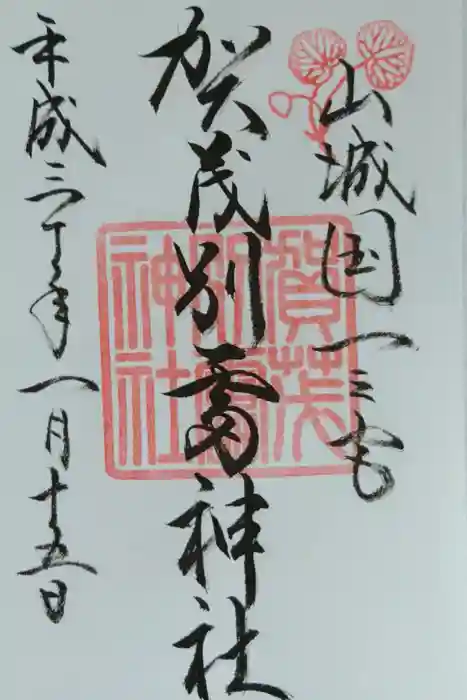 山城国一之宮
賀茂別雷神社
平成三十一年一月十五日
賀茂
別雷
神社